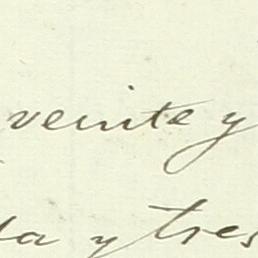 veinte y
y tres